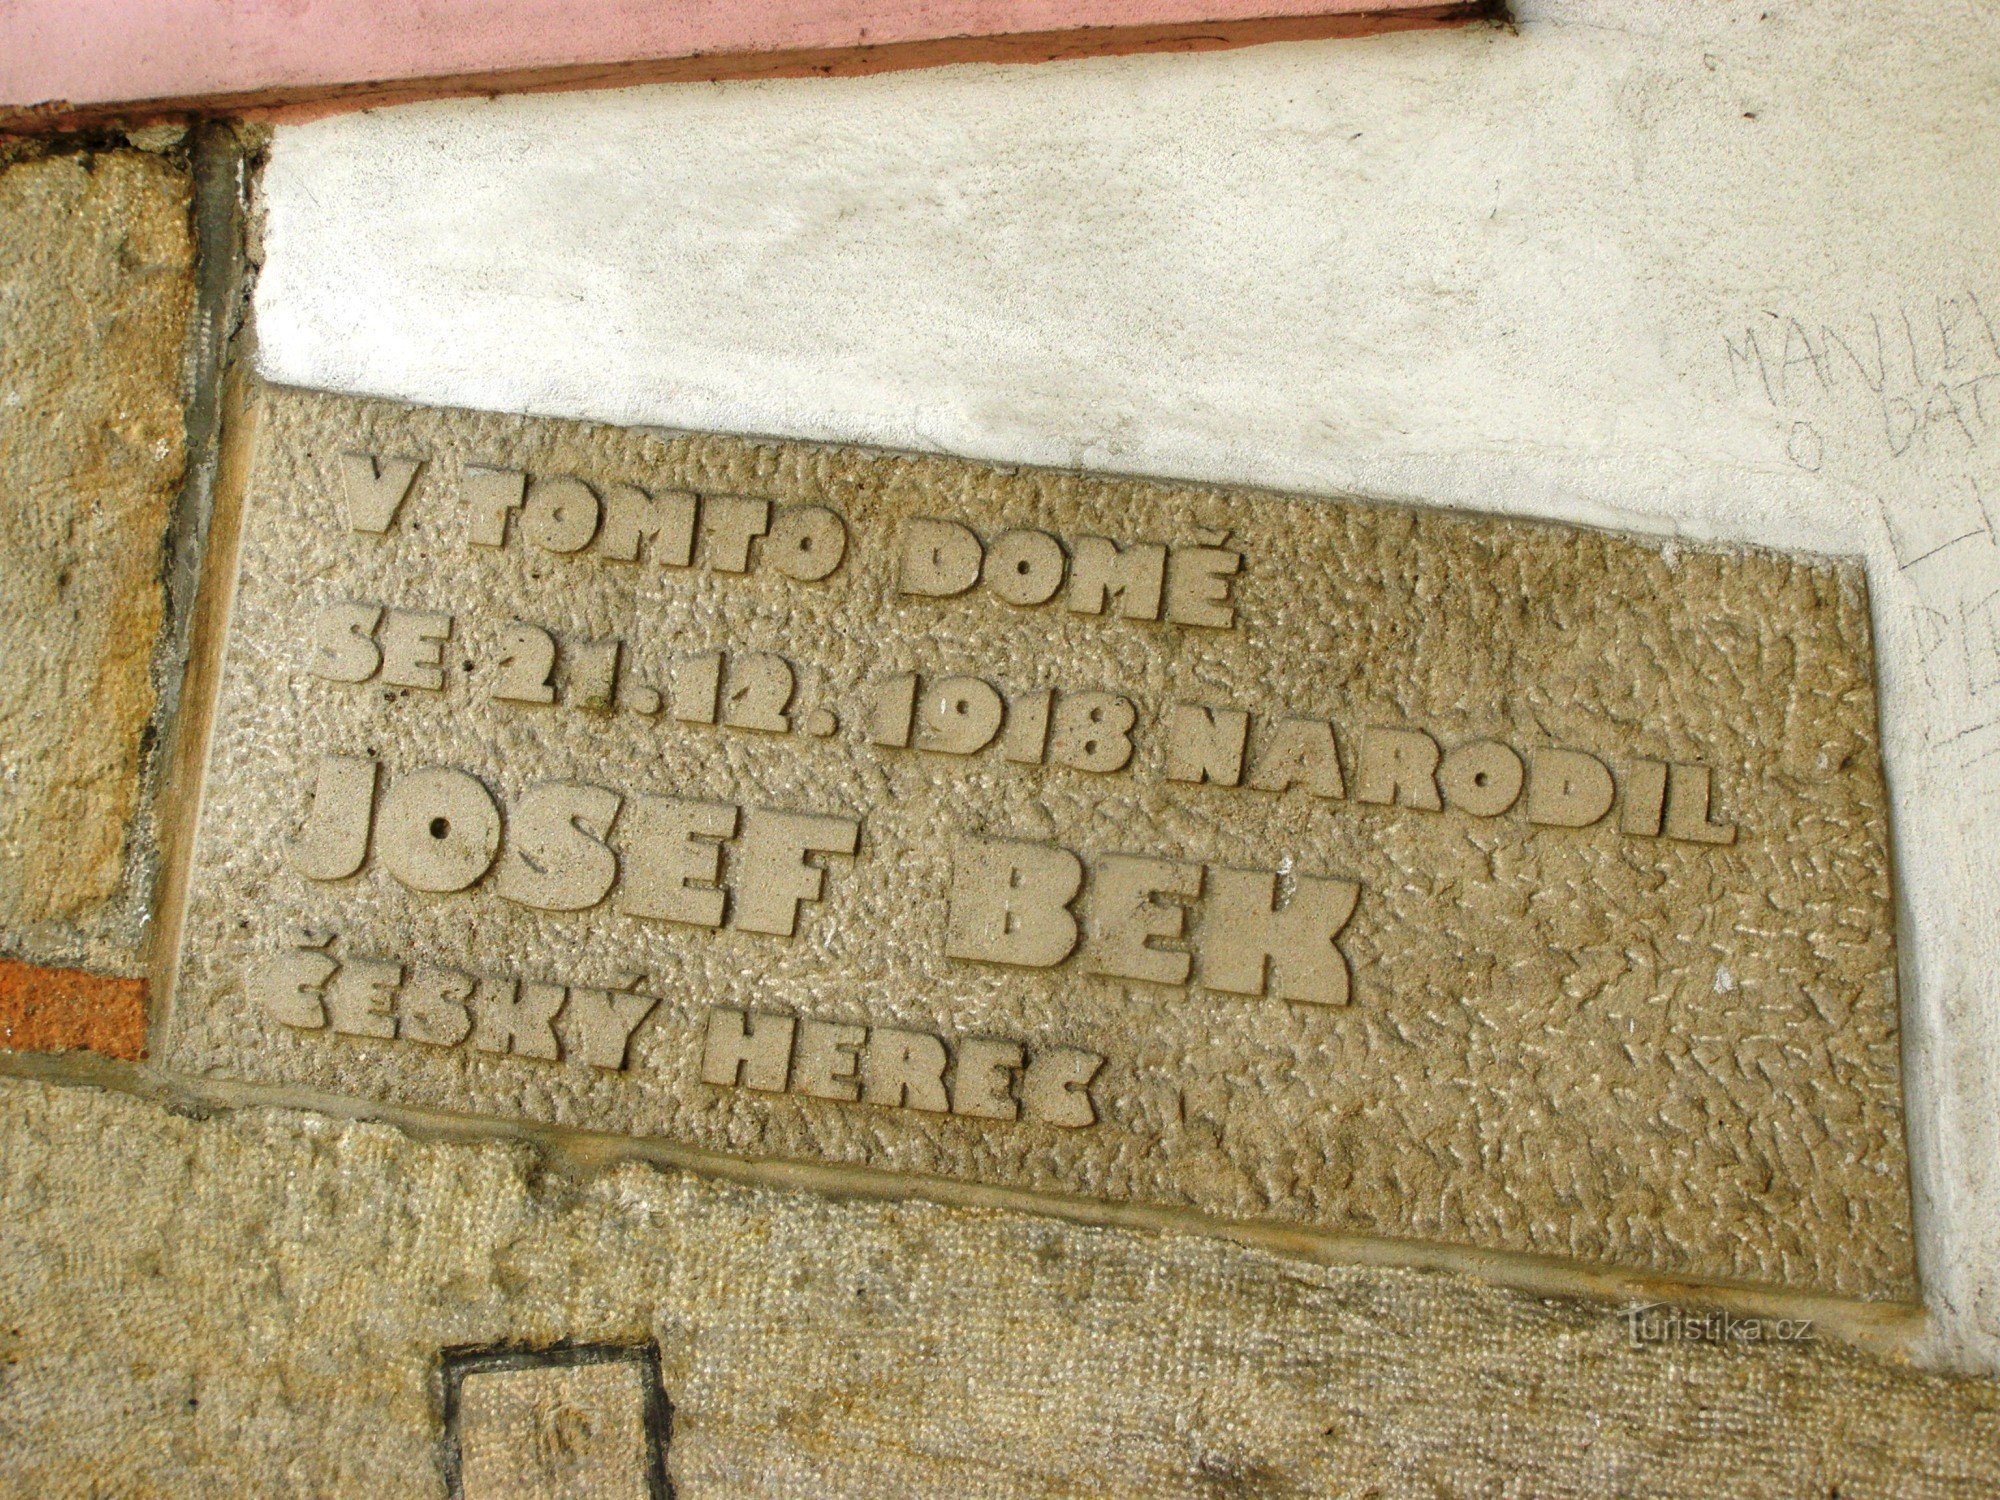 V TOMTO DOMĚ
SE 21.12.1918 NARODIL
JOSEF BEK
ČESKÝ HEREC
Turistika.cz